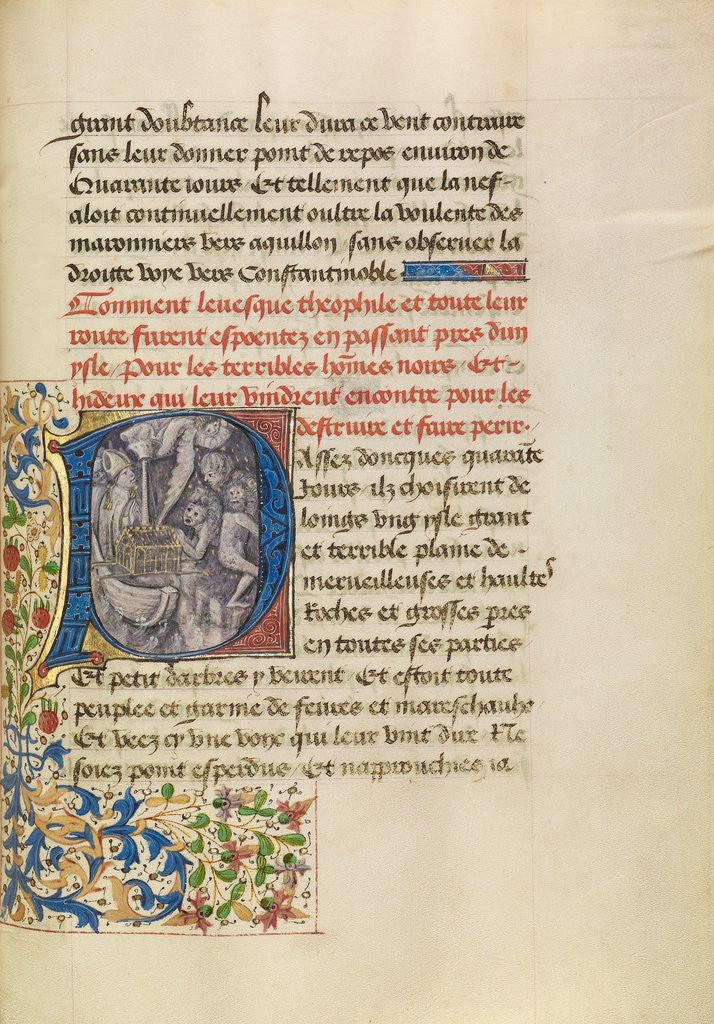 grant doubtance leur dura ce vent contraire
sans leur donner point de repos environ de
Quarante iours / Et tellement que la nef-
aloit continuellement oultre la voulente des
maronniers vers aquillon / sans observer la
droitte voye vers Constantinoble
Comment levesque theophile et toute leur
route furent espoentez en passant pres dun
ysle / Pour les terribles hōmes noirs / Et-
hideux qui leur vindrent encontre pour les
destruire et faire perir.
Assez doncques quarāte
Iours / ilz choisirent de
loings ung ysle grant
et terrible plaine de -
merveilleuses et haultes
Roches et grosses pres
en toutes ses parties
Et petit darbres y veirent / Et estoit toute
peuplee et garnie de feures et mareschaulx
Et veez cy une voye qui leur vint dire Ne
soiez point esperdus / Et napprouchies ia